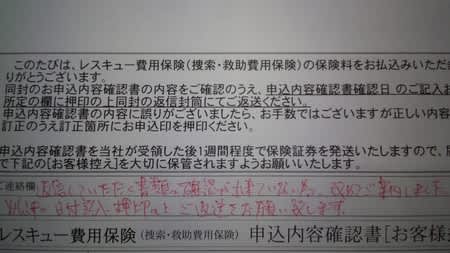 このたびは、レスキュー費用保険（捜索・救助費用保険）の保険料をお払込みいただき
りがとうございます。
同封のお申込内容確認書の内容をご確認のうえ、申込内容確認書確認日 のご記入お
所定の欄に押印の上同封の返信封筒にてご返送ください。
申込内容確認書の内容に誤りがございましたら、お手数ではございますが正しい内容
訂正のうえ訂正箇所にお申込印を押印ください。
申込内容確認書を当社が受領した後1週間程度で保険証券を発送いたしますので、
で下記の[お客様控え]を大切に保管されますようお願いいたします。
ご連絡欄 返信していただく書類の確認が出来ていない為、改めてご案内しました
日付記入・押印の上ご返送をお願い致します。
レスキュー費用保険（捜索・救助費用保険） 申込内容確認書[お客様